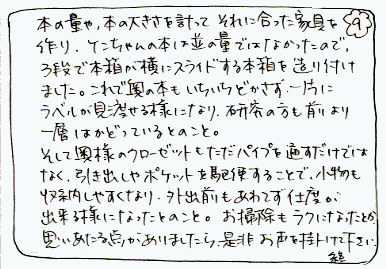 本の量や、本の大きさを計って それに合った家具を ⑨
作り、ケンちゃんの本は並の量ではなかったので、
3段で本箱が横にスライドする本箱を造り付け
ました。これで奥の本もいちいちどかさず、一方に
ラベルが見渡せる様になり、研究の方も前より
一層はかどっているとのこと。
そして奥様のクローゼットもただパイプを通すだけでは
なく、引き出しやポケットを駆使することで、小物も
収納しやすくなり、外出前もあわてず仕度が
出来る様になったとのこと。 お掃除もラクになったとか
思いあたる点がありましたら、是非お声を掛け下さい